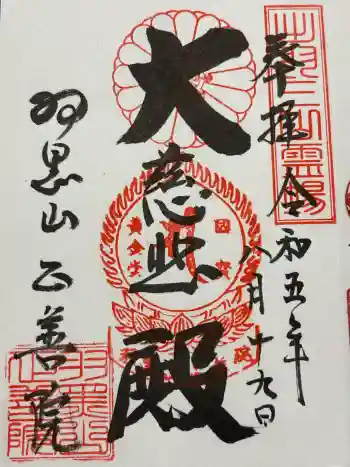 奉拝 令和五年
八月十九日
大慈悲殿
羽黒山 正善院
出羽三山霊場
國寳
黄金堂